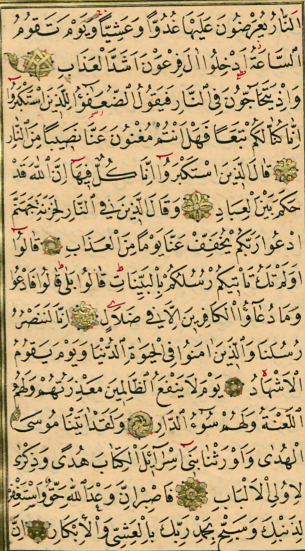 النار يعرضون عليها غدوا وعشيا ويوم تقوم
الساعة ادخلوا ال فرعون اشد العذاب
واذ يتحاجون في النار فيقول الضعفؤا للذين استكبروا
انا كنا لكم تبعا فهل انتم مغنون عنا نصيبا من النار
قال الذين استكبروا انا كل فيها ان الله قد
حكم بين العباد وقال الذين في النار لخزنة جهنم
ادعوا ربكم يخفف عنا يوما من العذاب قالوا
اولم تك تاتيكم رسلكم بالبينات قالوا بلى قالوا فادعوا
وما دعاؤا الكافرين الا في ضلال انا لننصر
رسلنا والذين امنوا في الحيوة الدنيا ويوم يقوم
الاشهاد يوم لا ينفع الظالمين معذرتهم ولهم
اللعنة ولهم سوء الدار ولقد اتينا موسى
الهدى واورثنا بني اسرائل الكتاب هدى وذكرى
لاولي الالباب فاصبر ان وعد الله حق واستغفر
لذنبك وسبح بحمد ربك بالعشي والابكار ان